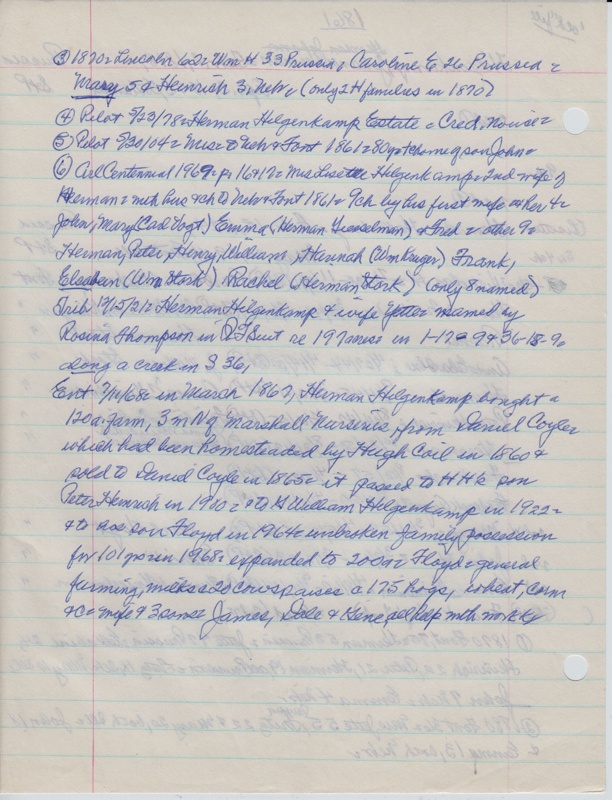 ③ 1870 = Lincoln 62 = Wm H. 33 Prussia, Caroline E 26 Prussia =
Mary 5 & Heinrich 3, Nebr, (only 2H families in 1870)
④ Pilot 5/23/78 = Herman Helgenkamp Estate = Cred. Notice =
⑤ Pilot 5/30/04 = Mrs = to Neb & Font 1861 = 80 yo @ home of son John =
⑥ Arl Centennial 1969 = p. 16 & 17 = Mrs Lisette Helgenkamp = 2nd wife of
Herman = with hus & ch to Neb & Font 1861 = 9ch by his first wife & her 4 =
John, Mary (Carl Vogt) Emma, (Herman ) & Fred = other 9 =
Herman, Peter, Henry, William, Hannah (Wm Kruger) Frank,
(Wm Stork) Rachel (Herman Stork) (only 8 named)
Trib 9/15/21 = Herman Helgenkamp & wife named by
Rosina Thompson in Q T Suit re 197 acres in 1-17-9 & 36-18-9,
along a creek in S 36,
Ent 68 = in March 1867, Herman Helgenkamp bought a
120a. farm, 3m N of Marshall Nurseries, from Daniel Coyle =
which had been homesteaded by Hugh Coil in 1860 &
sold to Daniel Coyle in 1865 = it passed to HHs son
Peter Heinrich in 1900 = to William Helgenkamp in 1922 =
& to his son Floyd in 1964 = unbroken family possession
for 101 yrs in 1968 = expanded to 200a = Floyd = general
farming, milks 20 cows raises a 175 hogs, wheat, corn
&c = wife & 3 sons = James, Dale & Gene all help with work,